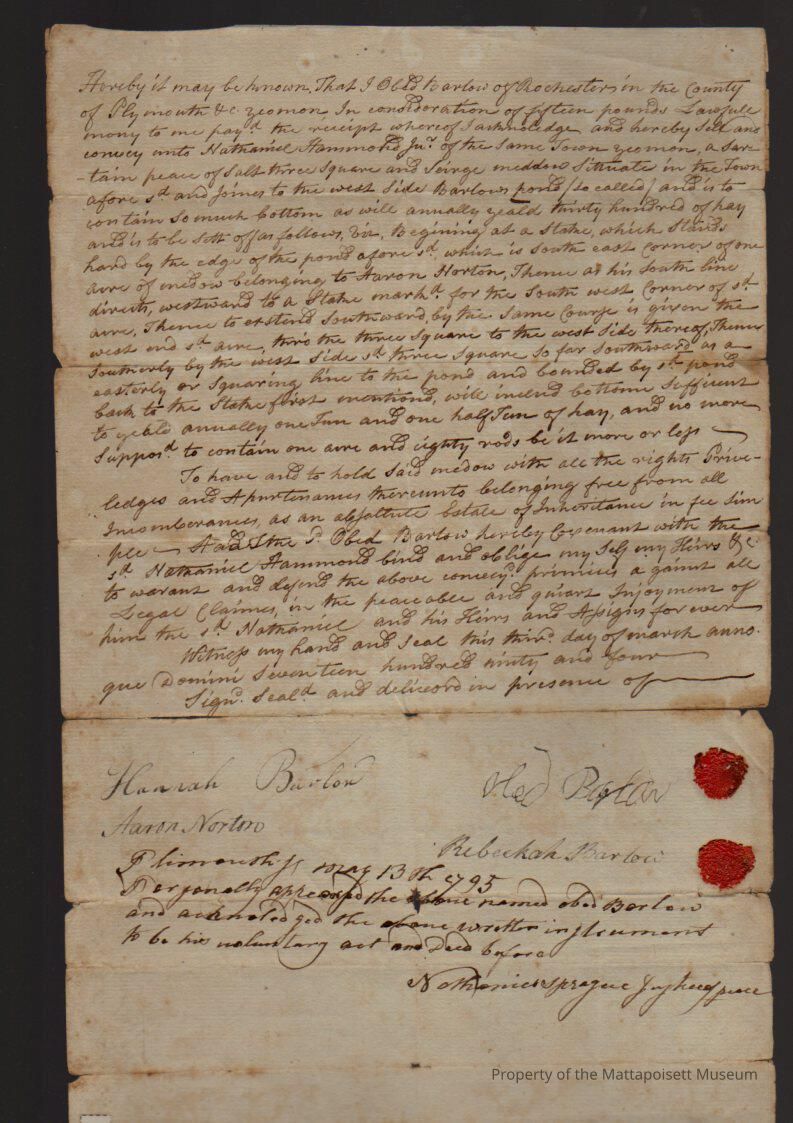 Hereby it may be known, That I Obed Barlow of Rochester in the County
of Plymouth &c. yeomon In consideration of fifteen pounds Lawfull
mony to me pay.d the receipt whereof I acknoledge and hereby sell and
convey unto Nathaniel Hammond Jur. of the same Town yeomon, a sar-
-tain peace of Salt three square and Seirge meddow Situate in the Town
afore sd. and Joines to the west side Barlows pond (so called) and is to
contain so much bottom as will annually yeald thirty hundred of hay
and is to be Sett off as follows, viz, Begining at a Stake, which Stands
hard by the edge of the pond afore sd. which is South east Corner of one
acre of medow belonging to Aaron Norton, Thence as his South line
direcets, westward to a Stake markd. for the South west Corner of sd.
acre, Thence to extend Southward, by the same Course is given the
west end sd. acre, thro the three square to the west side thereof, Thence
Southerly by the west side sd. three square so far Southward as a
easterly or Squaring line to the pond and bounded by sd. pond
back to the Stake first mentiond, will includ bottome Suffecent
to yeald annually one Tun and one half Tun of hay, and no more
Supposd. to contain one acre and eighty rods be it more or less
To have and to hold said medow with all the rights Prive-
ledges and Apurtenances thereunto belonging free from all
Incomberances, as an absolute Estate of Inheritance in fee Sim
ple And I the sd. Obed Barlow hereby Covenant with the
sd. Nathaniel Hammond bind and oblige my Self my Heirs &c.
to warant and defend the above conveyd. primises a gainst all
Legal Claimes, in the peaceable and quiart Injoyment of
him the sd. Nathaniel and his Heirs and Assigns for ever
Witness my hand and Seal this third day of march anno.
que Domini Seventeen hundred ninty and four
Signd. Seald. and deliverd in presence of
Hannah Barlow
Obed Barlow
Aaron Norton
Rebeckah Barlow
Plimouth ss may 13th 1795
Personally appeared the above named obed Barlow
and acknoledged the above written instrument
to be his voluntary act and Deed before
Nathaniel Sprague Justice of peace
Property of the Mattapoisett Museum